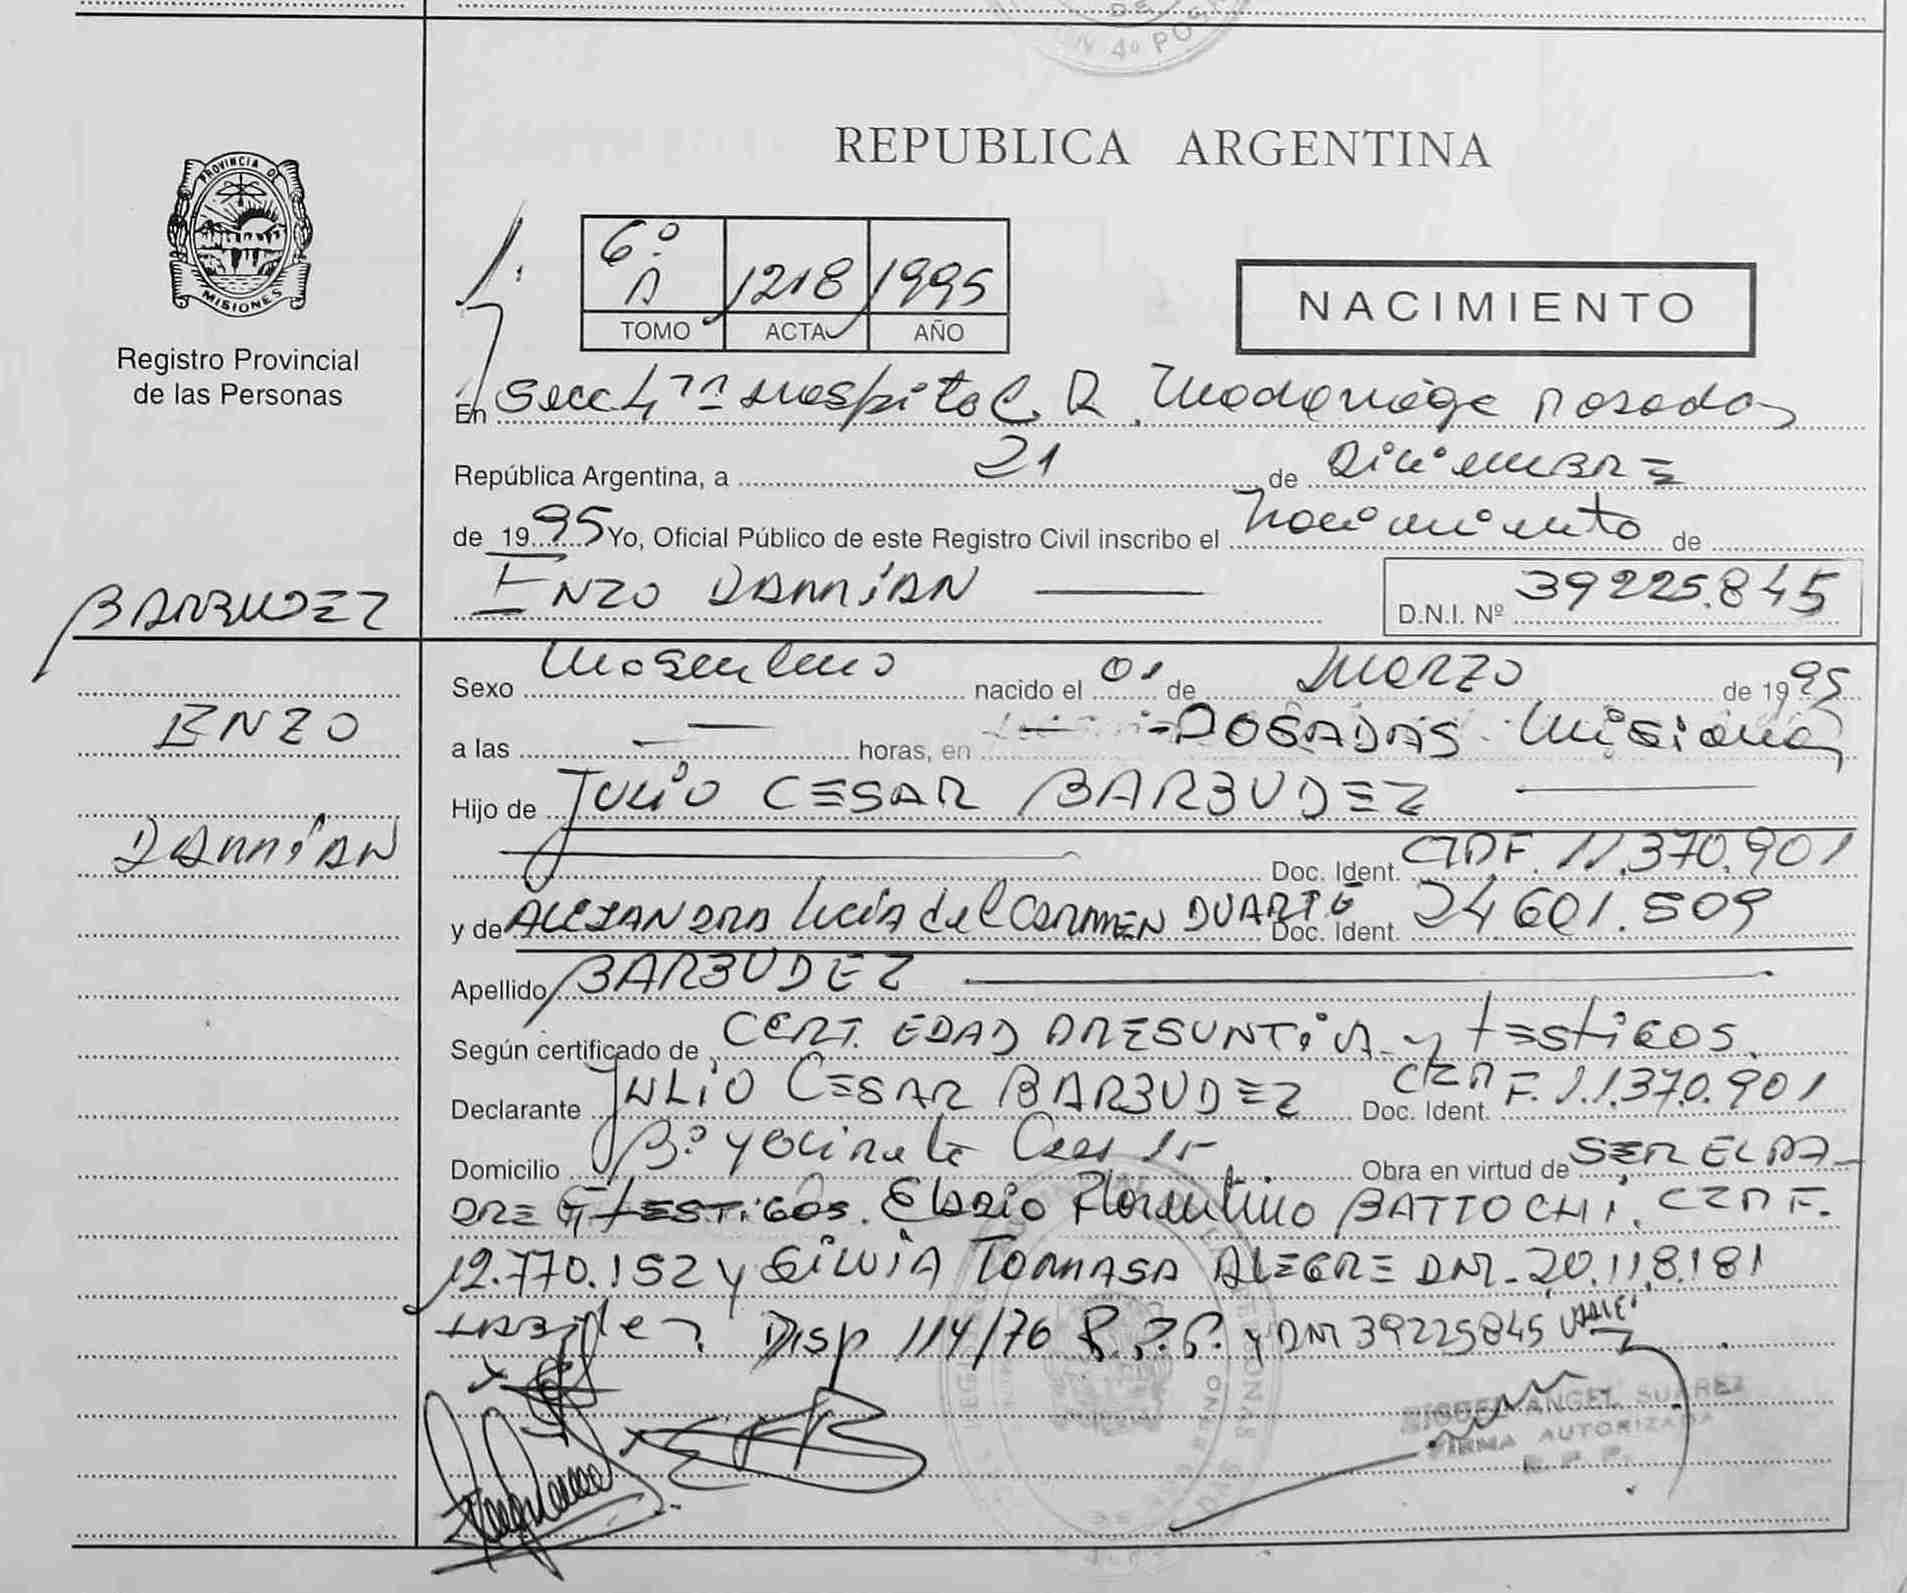 DE
IV 4º POSA
PROVINCIA DE
MISIONES
Registro Provincial
de las Personas
REPUBLICA ARGENTINA
6º A 1218 1995
TOMO ACTA AÑO
NACIMIENTO
En Secc 4ta Hospital R. Madariaga Posadas
República Argentina, a 21 de Diciembre
de 1995 Yo, Oficial Público de este Registro Civil inscribo el Nacimiento de
ENZO DAMIÁN
D.N.I. Nº 39225.845
BARBUDEZ
ENZO
DAMIÁN
Sexo Masculino nacido el 01 de Marzo de 1995
a las horas, en POSADAS Misiones
Hijo de JULIO CESAR BARBUDEZ
Doc. Ident. CIPF. 11.370.901
y de ALEJANDRA Lucía del CARMEN DUARTE Doc. Ident. 24601.509
Apellido BARBUDEZ
Según certificado de CERT. EDAD PRESUNTIVA y testigos.
Declarante JULIO CESAR BARBUDEZ Doc. Ident. F. 11.370.901
Domicilio Bº Yacireta Casa Obra en virtud de SER EL PA-
DRE testigos. Florentino BATTOCHI.
12.770.152 y SILVIA TOMASA ALEGRE DNI. 20.118.181
Disp 114/76 R.P.P. y DNI 39225845 VALE
MIGUEL ANGEL SUAREZ
FIRMA AUTORIZADA
R. P. P.